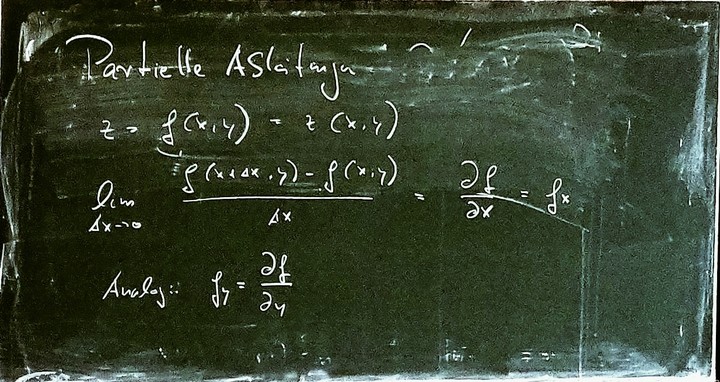 Partielle Ableitungen
z = f(x,y) = z(x,y)
lim Δx→0 (f(x+Δx,y) - f(x,y)) / Δx = ∂f/∂x = fx
Analog: fy = ∂f/∂y